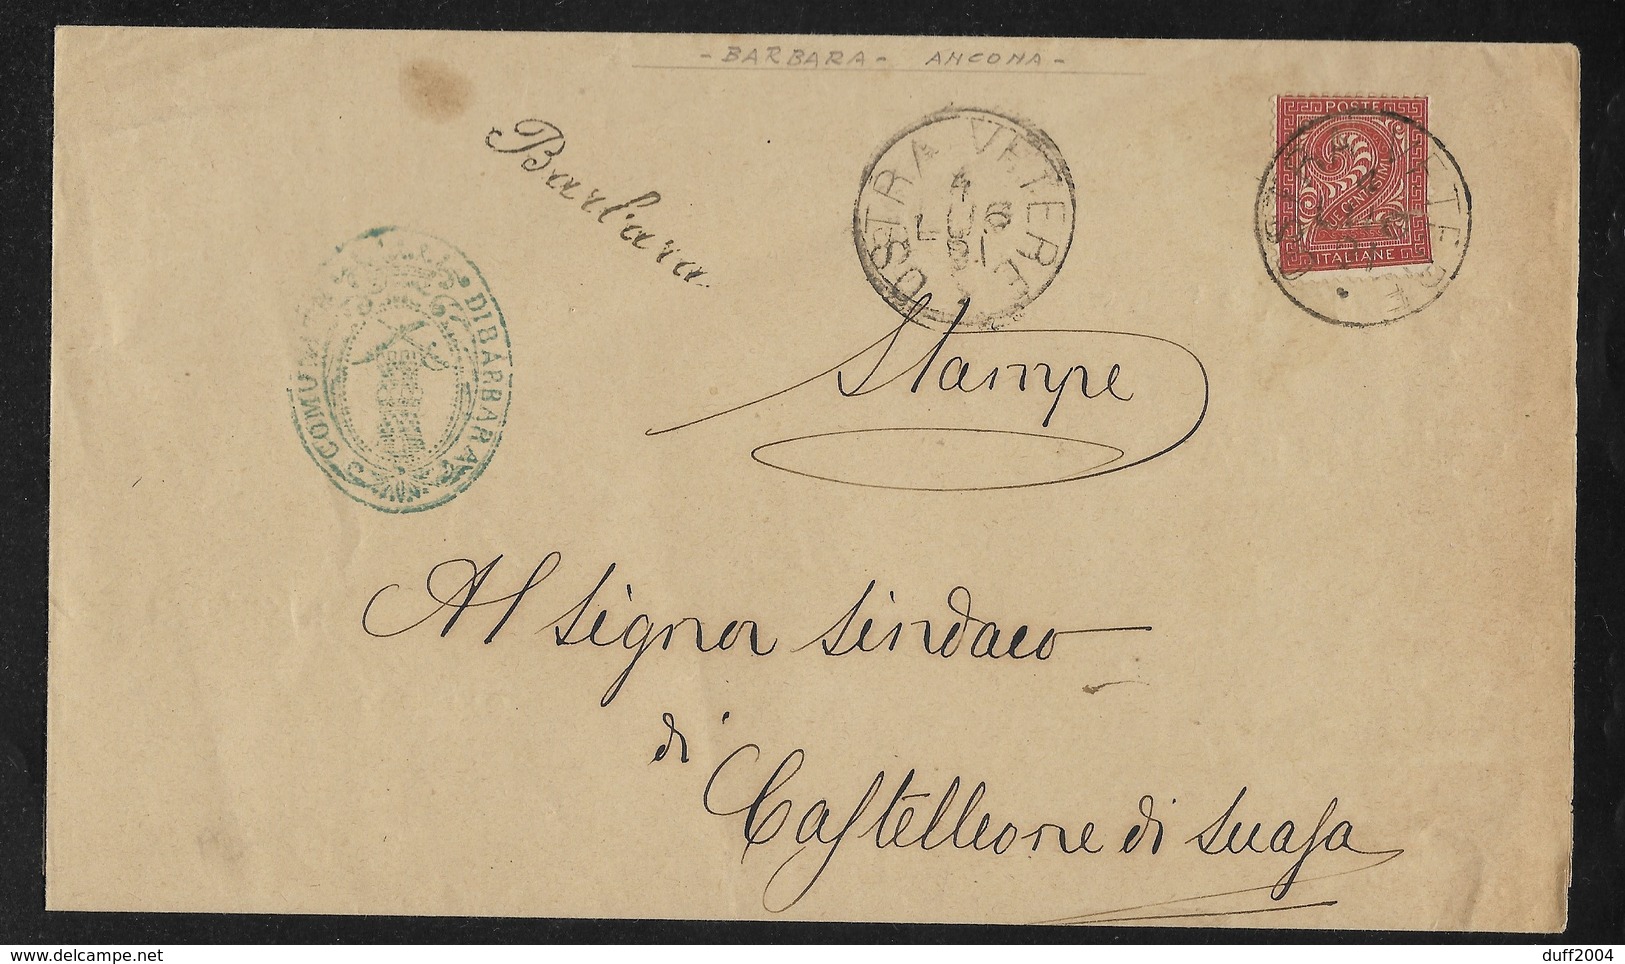 - BARBARA - ANCONA -
Barbara
OSTRA VETERE
4
LUG
91
POSTE
2
DUE CENTESIMI
ITALIANE
OSTRA VETERE
COMUNE DI BARBARA
Stampe
Al Signor Sindaco
di
Castelleone di Suasa
delcampe.net
duff2004